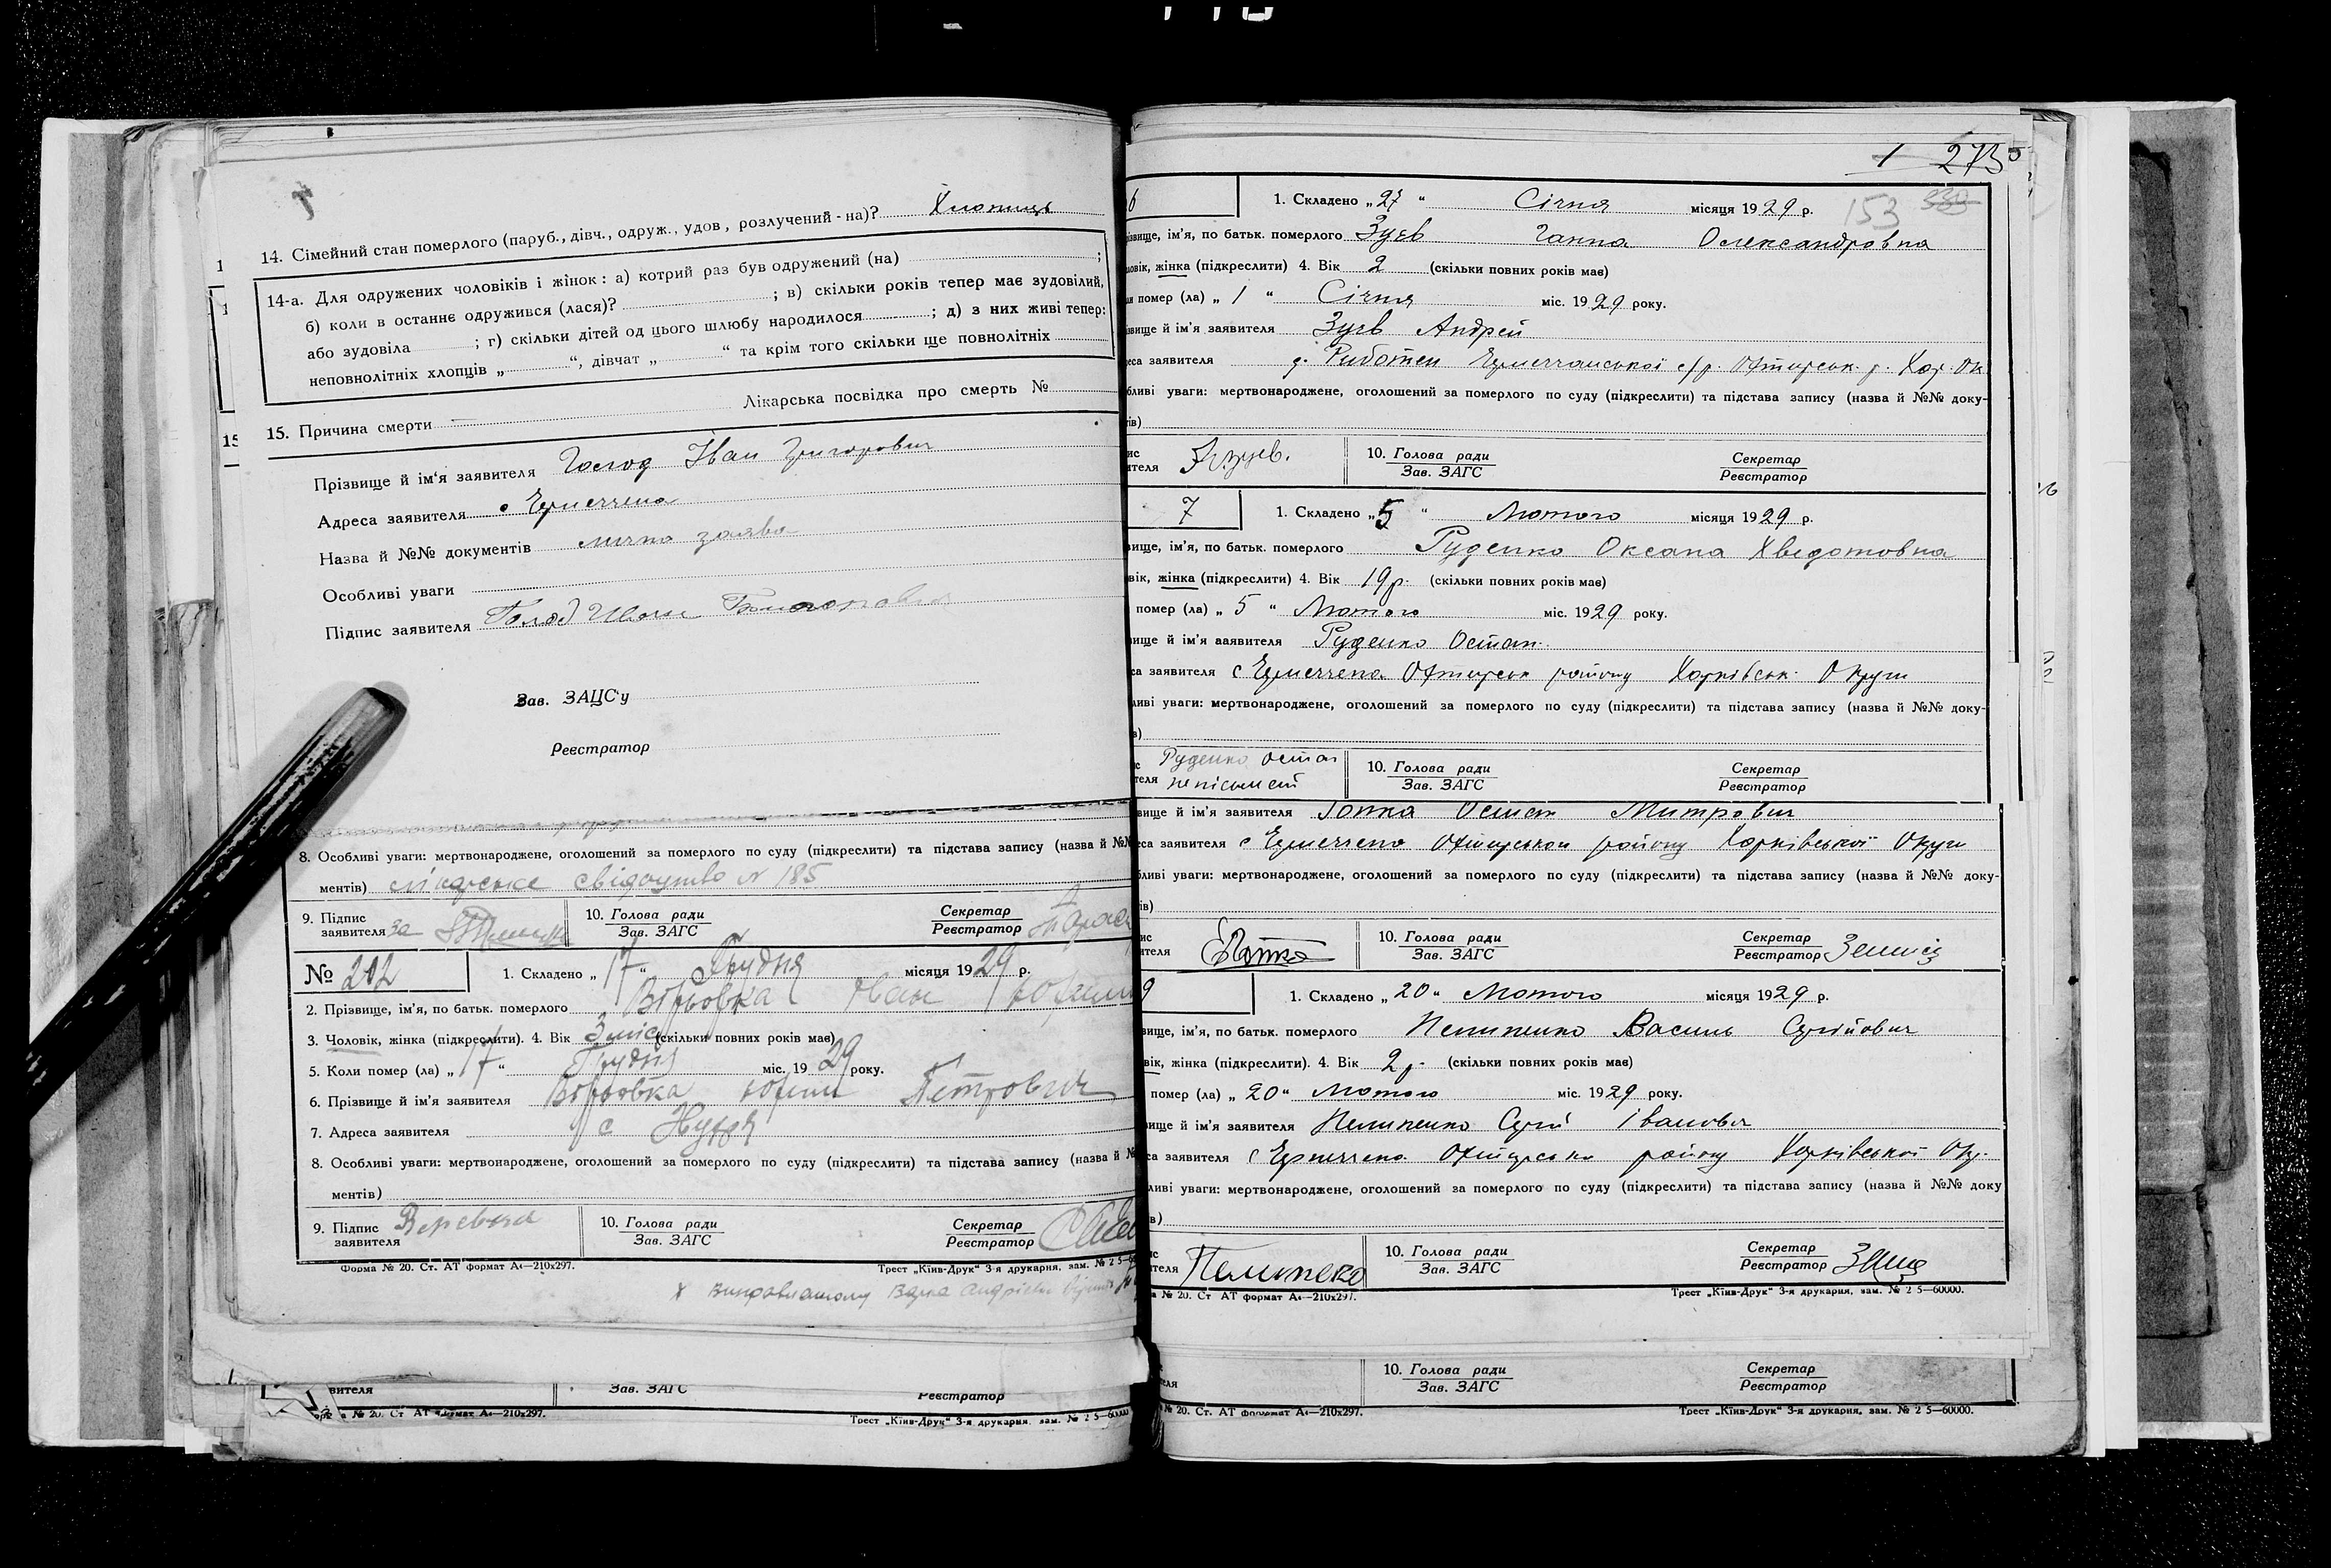 14. Сімейний стан померлого (паруб., дівч., одруж., удов, розлучений-на)? Хлопець
14-а. Для одружених чоловіків і жінок: а) котрий раз був одружений (на) ;
б) коли в останнє одружився (лася)? ; в) скільки років тепер має зудовілий,
або зудовіла ; г) скільки дітей од цього шлюбу народилося ; д) з них живі тепер:
неповнолітніх хлопців „ “, дівчат „ “ та крім того скільки ще повнолітніх
15. Причина смерти — Лікарська посвідка про смерть №
Прізвище й ім'я заявителя Іван Григорович
Адреса заявителя с
Назва й №№ документів заява
Особливі уваги
Підпис заявителя Голод Иван
Зав. ЗАЦС'у
Реєстратор
8. Особливі уваги: мертвонароджене, оголошений за померлого по суду (підкреслити) та підстава запису (назва й №№
ментів) лікарське свідоцтво № 185
9. Підпис заявителя за
10. Голова ради
Зав. ЗАГС
Секретар
Реєстратор
№ 202
1. Складено „ 17 “ Грудня місяця 1929 р.
2. Прізвище, ім'я, по батьк. померлого Вірьовка Іван
3. Чоловік, жінка (підкреслити). 4. Вік 3 міс (скільки повних років має)
5. Коли помер (ла) „ 17 “ Грудня міс. 1929 року.
6. Прізвище й ім'я заявителя Вірьовка Юхим Петрович
7. Адреса заявителя с
8. Особливі уваги: мертвонароджене, оголошений за померлого по суду (підкреслити) та підстава запису (назва й №
ментів)
9. Підпис заявителя
10. Голова ради
Зав. ЗАГС
Секретар
Реєстратор
Форма № 20. Ст. АТ формат А4—210x297.
Трест „Київ-Друк“ 3-я друкарня, зам. № 2 5—
х
вителя
Зав. ЗАГС
Реєстратор
№ 20. Ст АТ формат А4—210x297.
Трест „Київ-Друк“ 3-я друкарня, зам. № 2 5—60000
1 273
153
6
1. Складено „ 27 “ Січня місяця 1929 р.
різвище, ім'я, по батьк. померлого Зуєв Ганна Олександровна
ловік, жінка (підкреслити) 4. Вік 2 (скільки повних років має)
помер (ла) „ 1 “ Січня міс. 1929 року.
звище й ім'я заявителя Зуєв Андрей
еса заявителя с/р. Охтирськ. р. Хар. Ок
бливі уваги: мертвонароджене, оголошений за померлого по суду (підкреслити) та підстава запису (назва й №№ доку-
тів)
ис
ителя Зуев.
10. Голова ради
Зав. ЗАГС
Секретар
Реєстратор
7
1. Складено „ 5 “ Лютого місяця 1929 р.
вище, ім'я, по батьк. померлого Руденко Оксана Хведотовна
вік, жінка (підкреслити) 4. Вік 19 р. (скільки повних років має)
помер (ла) „ 5 “ Лютого міс. 1929 року.
вище й ім'я заявителя Руденко Остап.
са заявителя с Охтирськ району Харківськ. Округи
ливі уваги: мертвонароджене, оголошений за померлого по суду (підкреслити) та підстава запису (назва й №№ доку-
в)
с
теля Руденко Остап
10. Голова ради
Зав. ЗАГС
Секретар
Реєстратор
вище й ім'я заявителя Остап Митрович
са заявителя с району Харківської Округи
бливі уваги: мертвонароджене, оголошений за померлого по суду (підкреслити) та підстава запису (назва й №№ доку-
ів)
ис
ителя
10. Голова ради
Зав. ЗАГС
Секретар
Реєстратор
9
1. Складено „ 20 “ Лютого місяця 1929 р.
вище, ім'я, по батьк. померлого Пелипенко Василь Сергійович
вік, жінка (підкреслити). 4. Вік 2 р. (скільки повних років має)
помер (ла) „ 20 “ Лютого міс. 1929 року.
вище й ім'я заявителя Пелипенко Сергій Іванович
са заявителя с району Харківської Окр.
ливі уваги: мертвонароджене, оголошений за померлого по суду (підкреслити) та підстава запису (назва й №№ доку
в)
ис
ителя
10. Голова ради
Зав. ЗАГС
Секретар
Реєстратор
№ 20. Ст АТ формат А4—210x297.
Трест „Київ-Друк“ 3-я друкарня, зам. № 2 5—60000.
еля
10. Голова ради
Зав. ЗАГС
Секретар
Реєстратор
№ 20. Ст. АТ формат А4—210x297.
Трест „Київ-Друк“ 3-я друкарня, зам. № 2 5—60000.